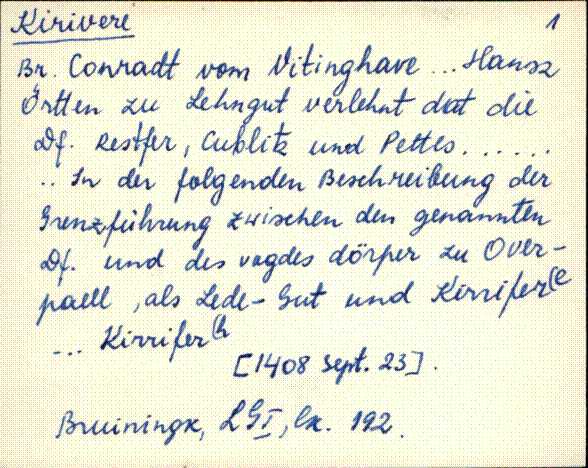 Kirivere 1
Br. Conradt vom Vitinghave ... Hansz
Örtten zu Lehngut verlehnt dat die
Df. Restfer, Cublitz und Pettes......
.. In der folgenden Beschreibung der
Grenzführung zwischen den genannten
Df. und des vogdes dörper zu Over-
paell, als Lede-Gut und Kirrifer(e
... Kirrifer(h
[1408 Sept. 23].
Bruiningk, LGI, 192.